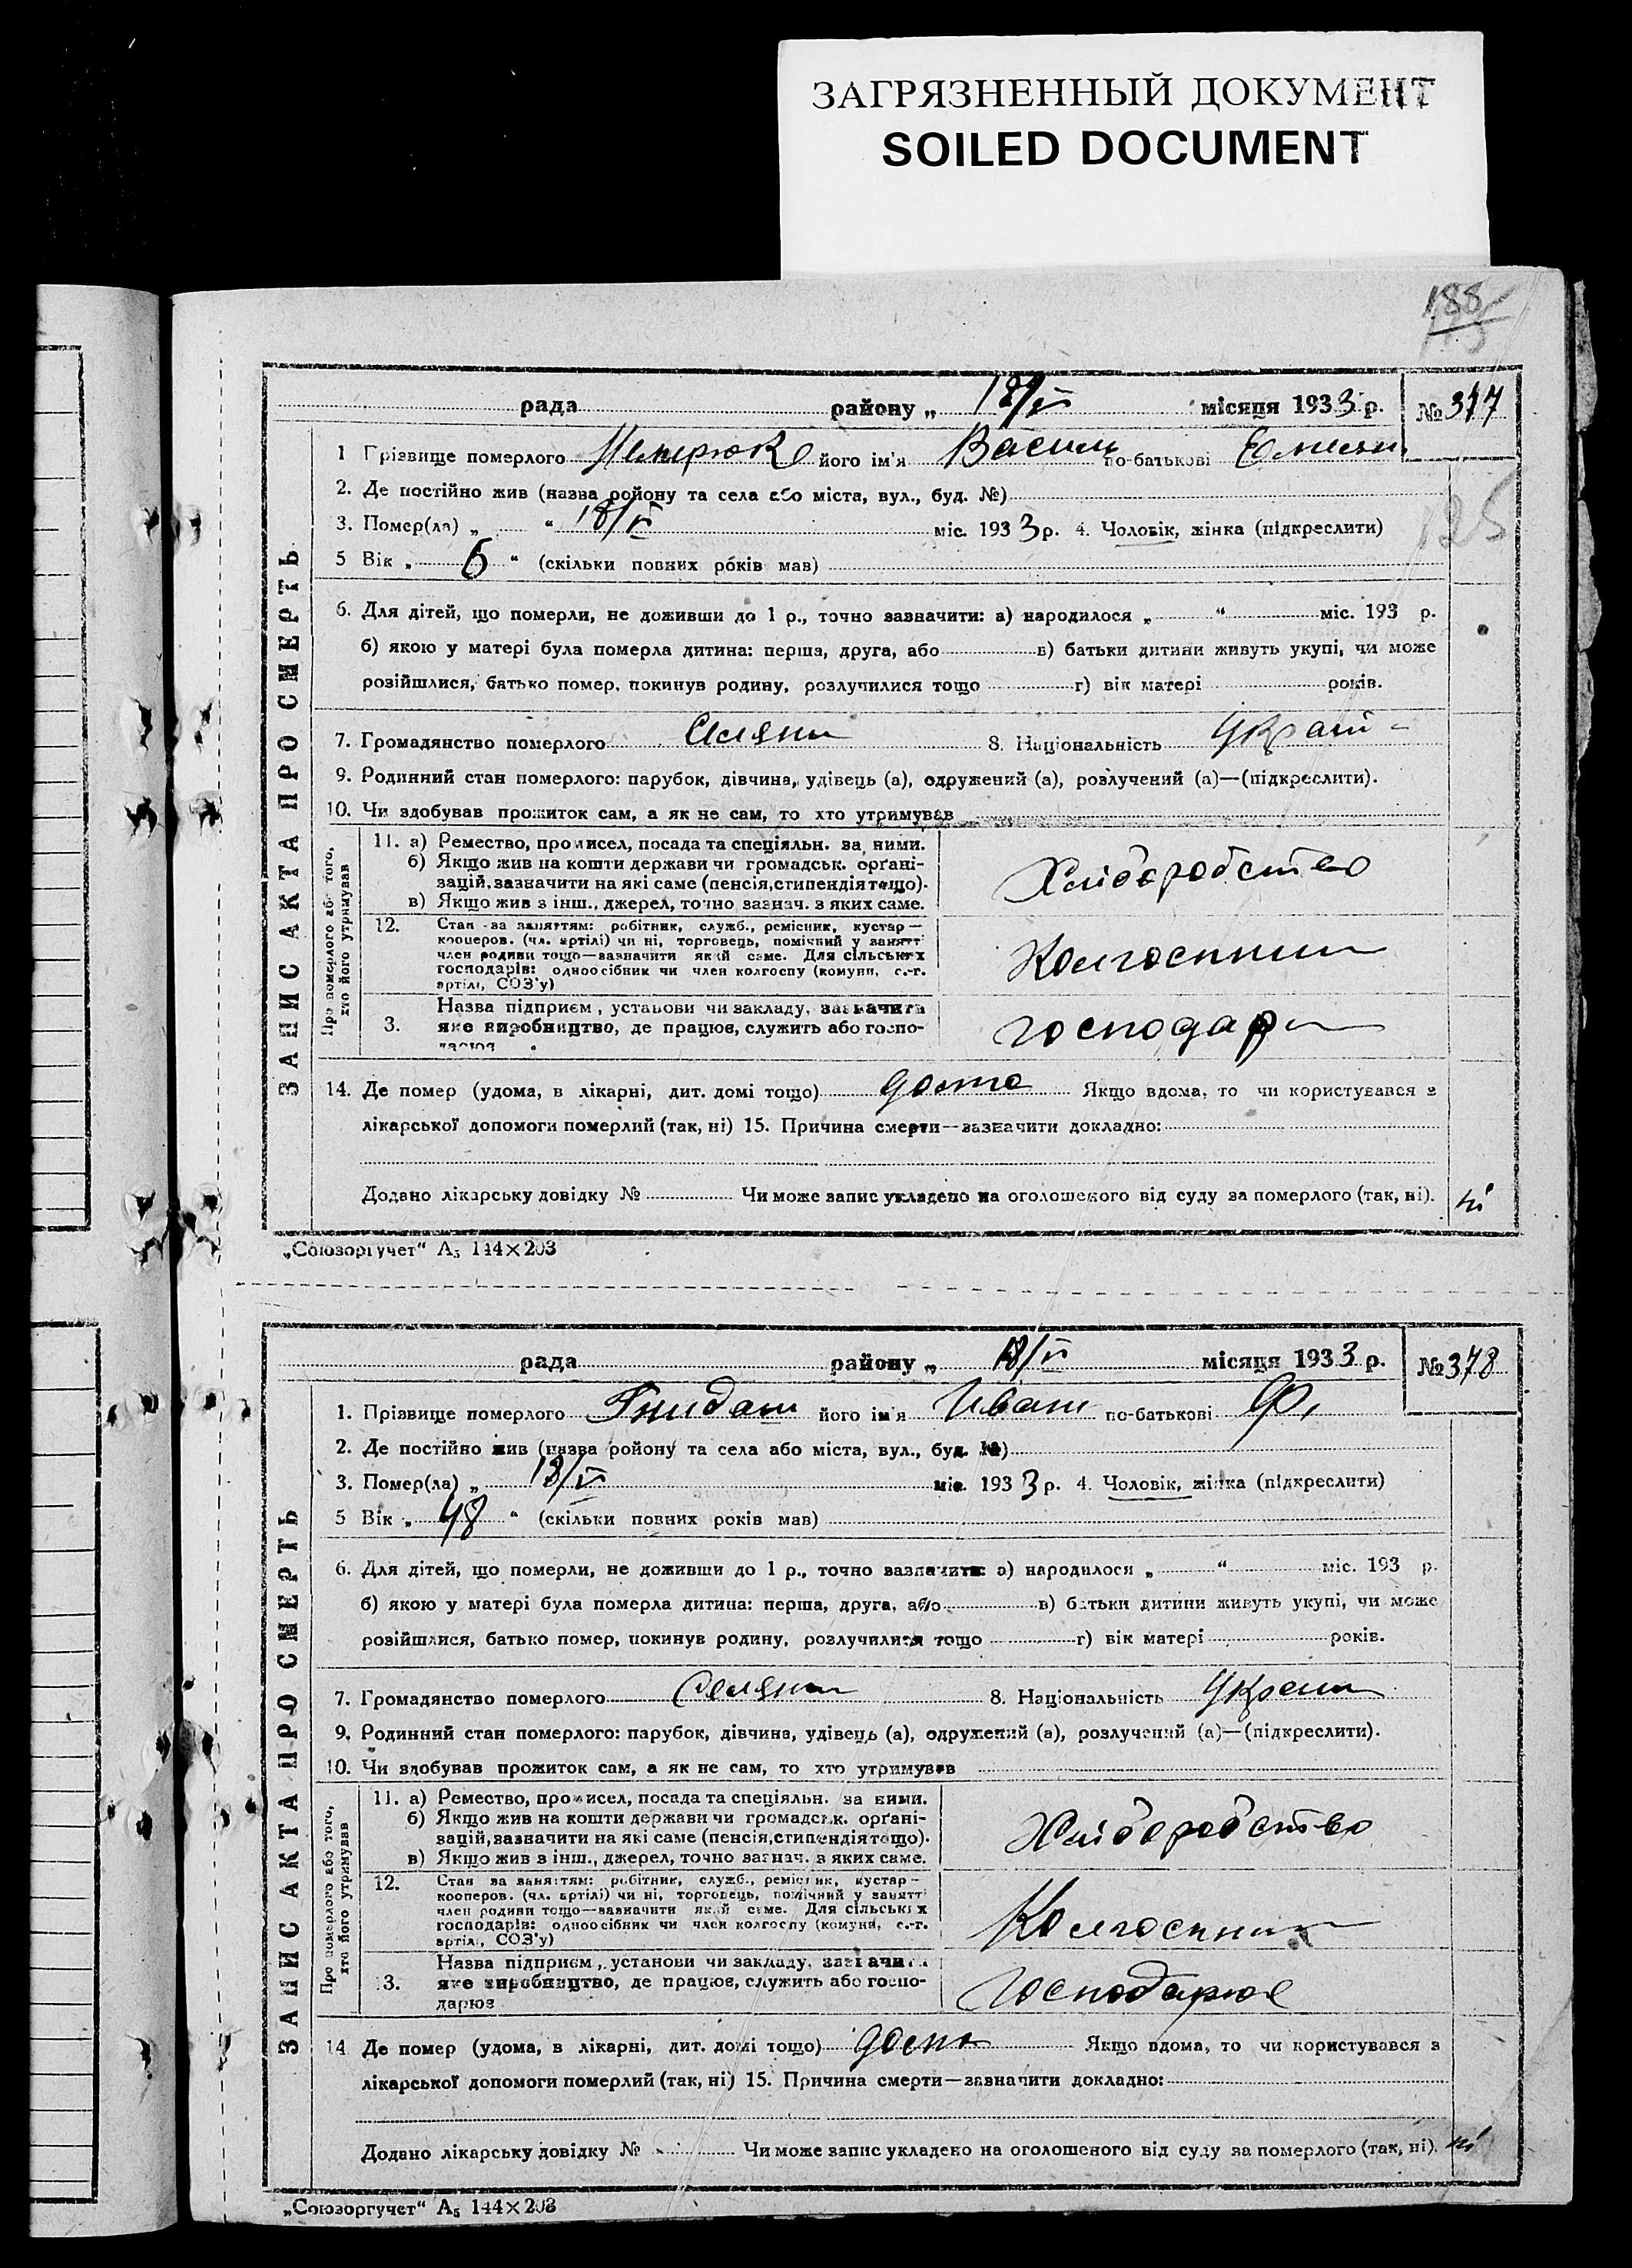 ЗАГРЯЗНЕННЫЙ ДОКУМЕНТ
SOILED DOCUMENT
188
125
рада району „ 18/V місяця 1933 р. № 377
1 Прізвище померлого його ім'я Василь по-батькові
2. Де постійно жив (назва району та села або міста, вул., буд. №)
3. Помер(ла) „ “ 18/V міс. 1933 р. 4. Чоловік, жінка (підкреслити)
5 Вік „ 6 “ (скільки повних років мав)
6. Для дітей, що померли, не доживши до 1 р., точно зазначити: а) народилося „ “ міс. 193 р.
б) якою у матері була померла дитина: перша, друга, або в) батьки дитини живуть укупі, чи може
розійшлися, батько помер, покинув родину, розлучилися тощо г) вік матері років.
7. Громадянство померлого Селянин 8. Національність Украї-
9. Родинний стан померлого: парубок, дівчина, удівець (а), одружений (а), розлучений (а)—(підкреслити).
10. Чи здобував прожиток сам, а як не сам, то хто утримував
ЗАПИС АКТА ПРО СМЕРТЬ
Про померлого або того,
хто його утримував
11. а) Ремество, промисел, посада та спеціяльн. за ними.
б) Якщо жив на кошти держави чи громадськ. орґані-
зацій, зазначити на які саме (пенсія, стипендія тощо).
в) Якщо жив з інш., джерел, точно зазнач. з яких саме.
Хліборобство
12. Стан за заняттям: робітник, служб., ремісник, кустар—
кооперов. (чл. артілі) чи ні, торговець, помічний у занятті
член родини тощо—зазначити який саме. Для сільських
господарів: одноосібник чи член колгоспу (комуни, с.-г.
артілі, СОЗ'у)
Колгоспник
3. Назва підприєм., установи чи закладу, зазначити
яке виробництво, де працює, служить або госпо-
дарює
господар
14. Де помер (удома, в лікарні, дит. домі тощо) дома Якщо вдома, то чи користувався з
лікарської допомоги померлий (так, ні) 15. Причина смерти—зазначити докладно:
Додано лікарську довідку № Чи може запис укладено на оголошеного від суду за померлого (так, ні). ні
„Союзоргучет“ А5 144×203
рада району „ 18/V місяця 1933 р. № 378
1. Прізвище померлого Гнидаш його ім'я Иван по-батькові Ф.
2. Де постійно жив (назва району та села або міста, вул., буд. №)
3. Помер(ла) „ 18/V міс. 1933 р. 4. Чоловік, жінка (підкреслити)
5 Вік „ 48 “ (скільки повних років мав)
6. Для дітей, що померли, не доживши до 1 р., точно зазначити: а) народилося „ “ міс. 193 р.
б) якою у матері була померла дитина: перша, друга, або в) батьки дитини живуть укупі, чи може
розійшлися, батько помер, покинув родину, розлучилися тощо г) вік матері років.
7. Громадянство померлого Селянин 8. Національність Украин
9. Родинний стан померлого: парубок, дівчина, удівець (а), одружений (а), розлучений (а)—(підкреслити).
10. Чи здобував прожиток сам, а як не сам, то хто утримував
ЗАПИС АКТА ПРО СМЕРТЬ
Про померлого або того,
хто його утримував
11. а) Ремество, промисел, посада та спеціяльн. за ними.
б) Якщо жив на кошти держави чи громадськ. орґані-
зацій, зазначити на які саме (пенсія, стипендія тощо).
в) Якщо жив з інш., джерел, точно зазнач. з яких саме.
Хліборобство
12. Стан за заняттям: робітник, служб., ремісник, кустар—
кооперов. (чл. артілі) чи ні, торговець, помічний у занятті
член родини тощо—зазначити який саме. Для сільських
господарів: одноосібник чи член колгоспу (комуни, с.-г.
артілі, СОЗ'у)
Колгоспник
13. Назва підприєм., установи чи закладу, зазначити
яке виробництво, де працює, служить або госпо-
дарює
Господарює
14 Де помер (удома, в лікарні, дит. домі тощо) дома Якщо вдома, то чи користувався з
лікарської допомоги померлий (так, ні) 15. Причина смерти—зазначити докладно:
Додано лікарську довідку № Чи може запис укладено на оголошеного від суду за померлого (так, ні). ні
„Союзоргучет“ А5 144×203